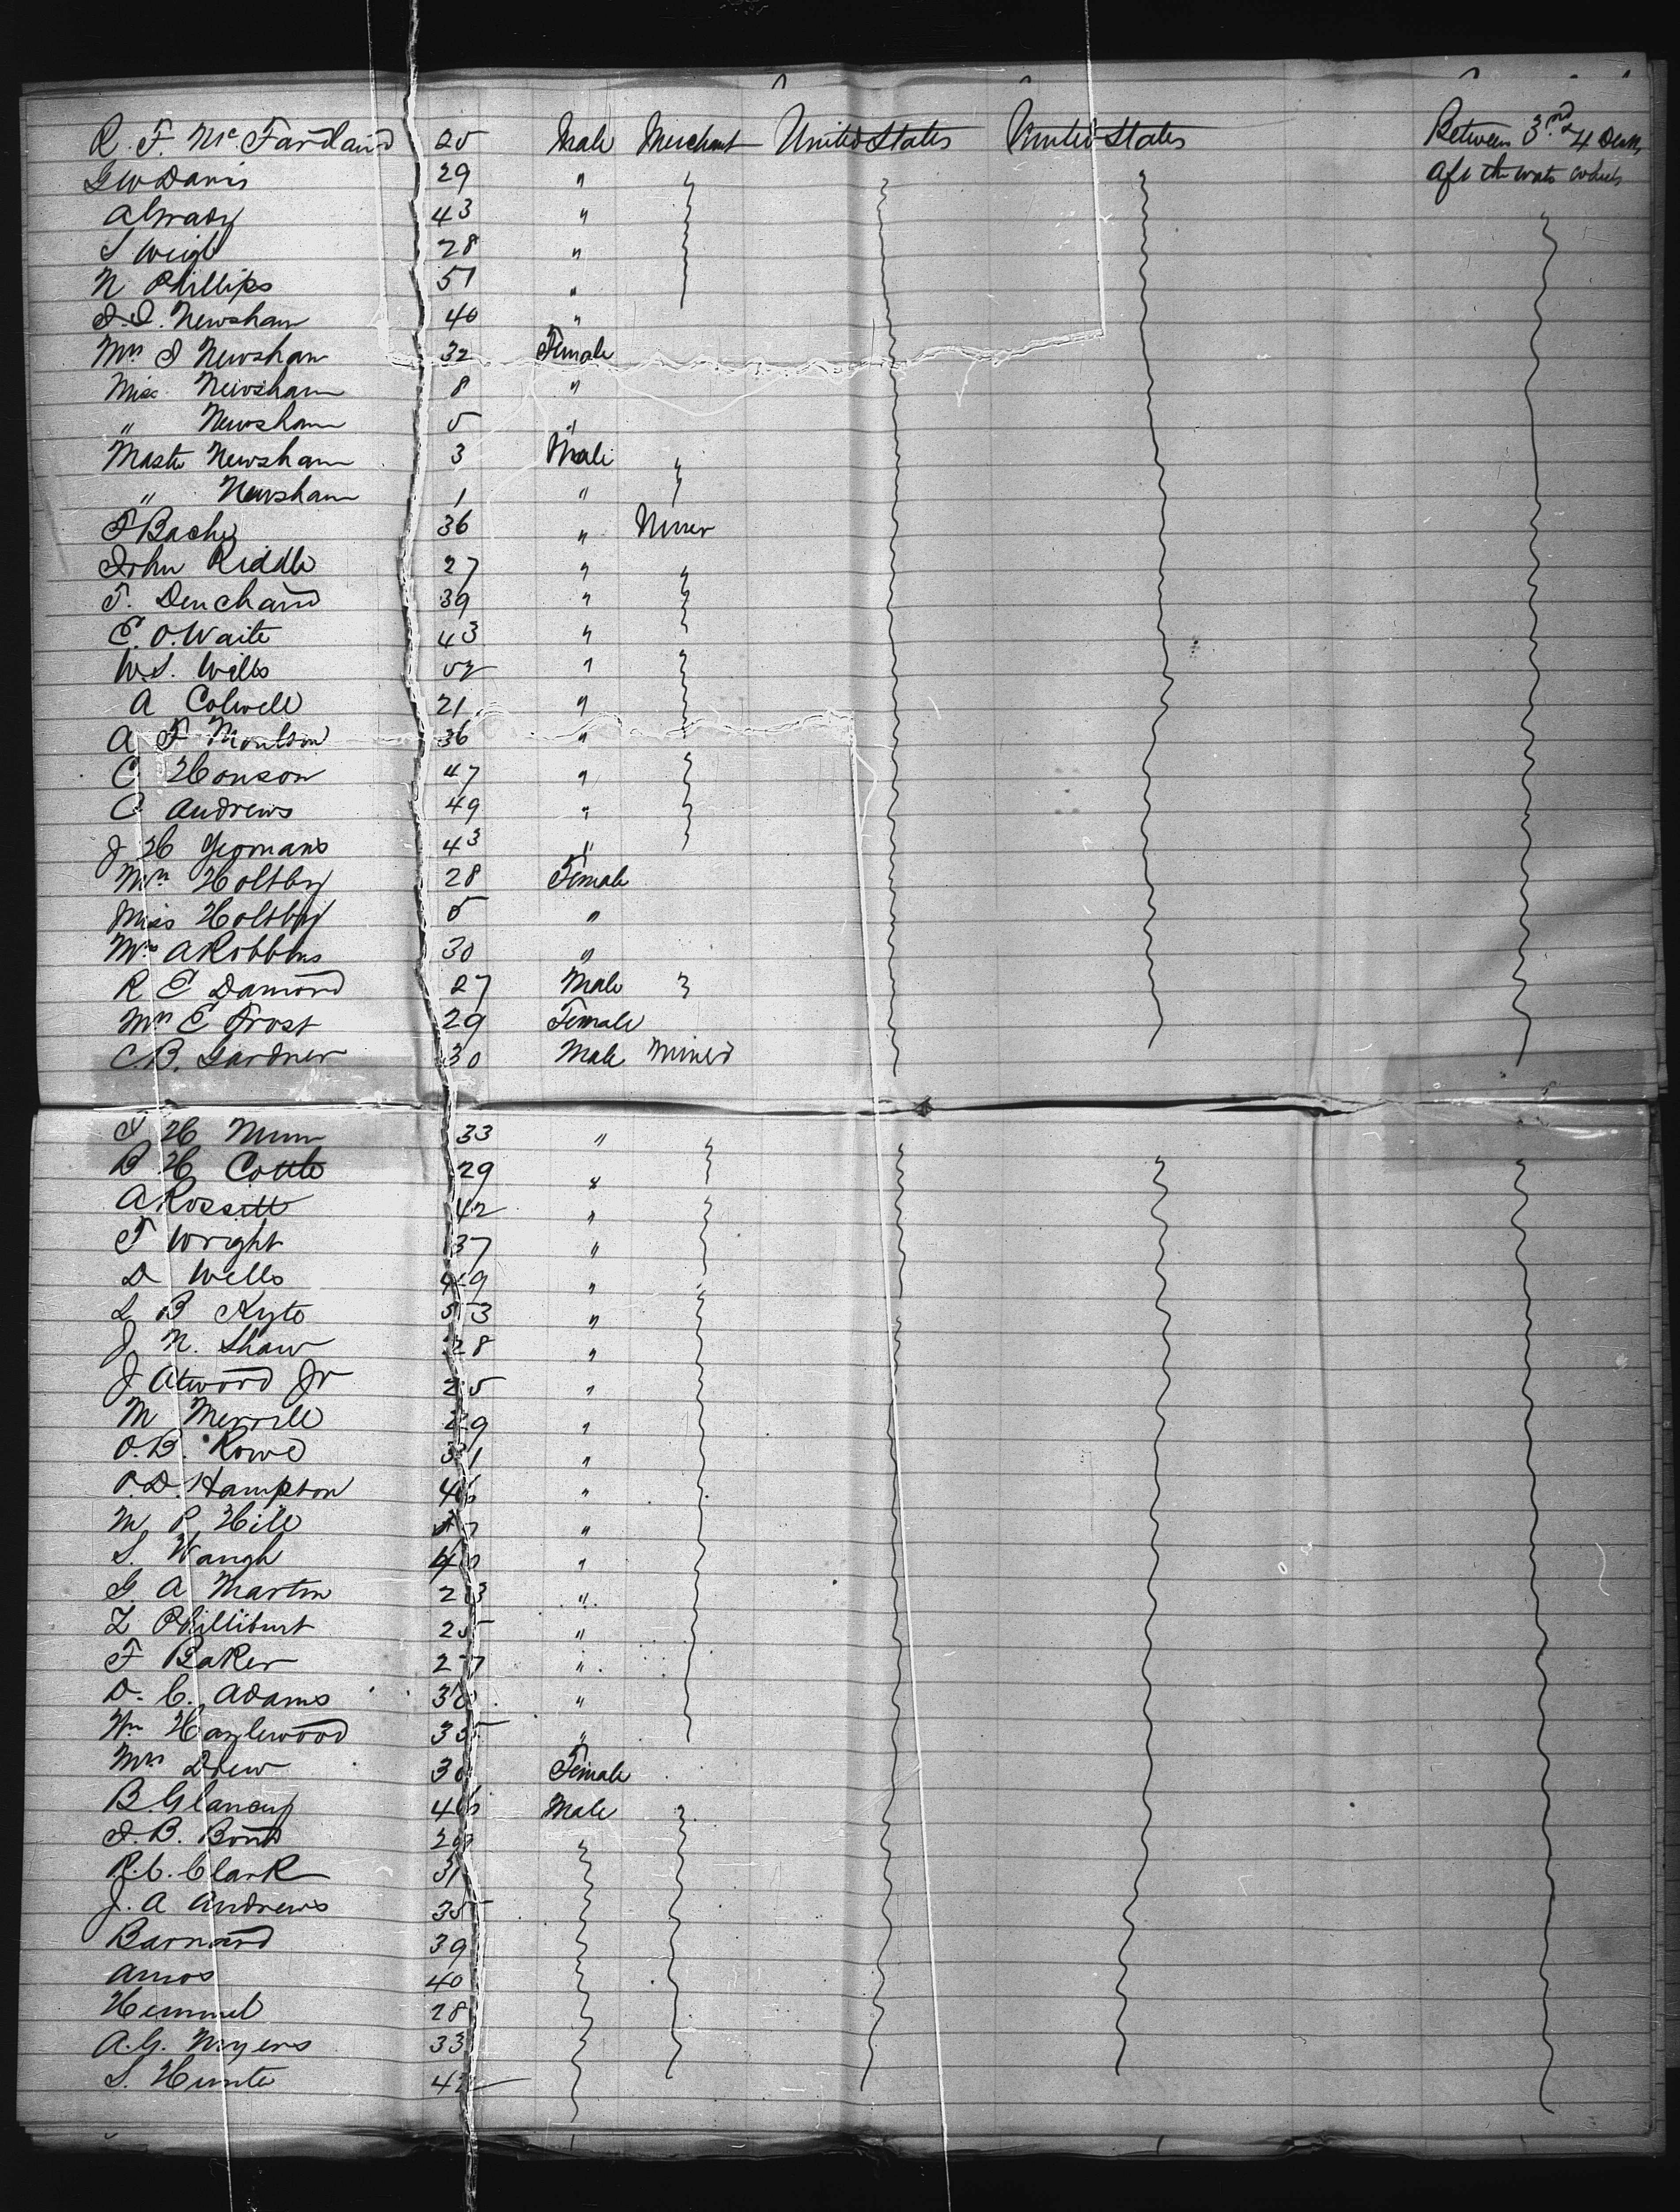 R. F. McFarland 25 Male Merchant United States United States Between 3rd & 4 Decks
G W Davis 29 " aft the water wheels
A Grady 43 "
S Weigh 28 "
N Phillips 51 "
I. I. Newsham 40 "
Mrs I Newsham 32 Female
Miss Newsham 8 "
" Newsham 5 "
Master Newsham 3 Male
" Newsham 1 "
F Bache 36 " Miner
John Riddle 27 "
F. Denchand 39 "
E. O. Waite 43 "
W. S. Wills 52 "
A Colwell 21 "
A F Moulton 36 "
C Honson 47 "
C Andrews 49 "
J H Yeomans 43 "
Mrs Holtby 28 Female
Miss Holtby 5 "
Mrs A Robbins 30 "
R E Damond 27 Male
Mrs E Frost 29 Female
C. B. Gardner 30 Male Miner
I H Munn 33 "
B H Cottle 29 "
A Rossitt 42 "
F Wright 37 "
D Wells 49 "
L B Kyto 53 "
J N. Shaw 28 "
J Atwood Jr 25 "
M Merrill 29 "
O. B. Rowe 31 "
P. D. Hampton 46 "
M P Hill "
S. Waugh 40 "
G A Martin 23 "
Z Philliburt 25 "
F Baker 27 "
D. C. Adams 30 "
Wm Hazlewood 35 "
Mrs Drew 30 Female
B. Glancey 46 Male
I. B. Bond
R. C. Clark 31
J. A Andrews 35
Barnard 39
Amos 40
Hummel 28
A. G. Myers 33
S. Hunte 42